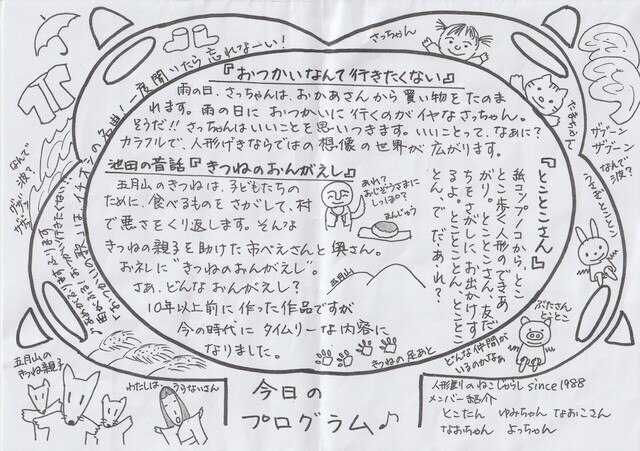 『おつかいなんて行きたくない』
雨の日、さっちゃんは、おかあさんから買い物をたのま
れます。雨の日におつかいに行くのがイヤなさっちゃん。
そうだ!!さっちゃんはいいことを思いつきます。いいことって、なぁに?
カラフルで、人形げきならではの想像の世界が広がります。
池田の昔話『きつねのおんがえし』
五月山のきつねは、子どもたちの
ために、食べるものをさがして、村
で悪さをくり返します。そんな
きつねの親子を助けた市べえさんと奥さん。
お礼に"きつねのおんがえし"。
さあ、どんなおんがえし?
10年以上前に作った作品ですが
今の時代にタイムリーな内容に
なりました。
あれ?
おじぞうさまに
しっぽ?
まんじゅう
五月山
きつねの足あと
『とことこさん』
紙コップ1コから、とこ
とこ歩く人形のできあ
がり。とことこさん、友だ
ちをさがしにお出かけす
るよ。とことことん、とこと
とん、で、だぁれ?
どんな仲間が
いるのかなぁ
さっちゃん
ザブーン
ザブーン
なんで
波?
ぶたさん
とことこ
一度聞いたら忘れなーい!
なんで
波?
五月山の
きつね親子
わたしは
うらないさん
今日の
プログラム♪
人形劇のねこじゃらし since1988
メンバー紹介
とこたん ゆみちゃん なおこさん
なおちゃん よっちゃん